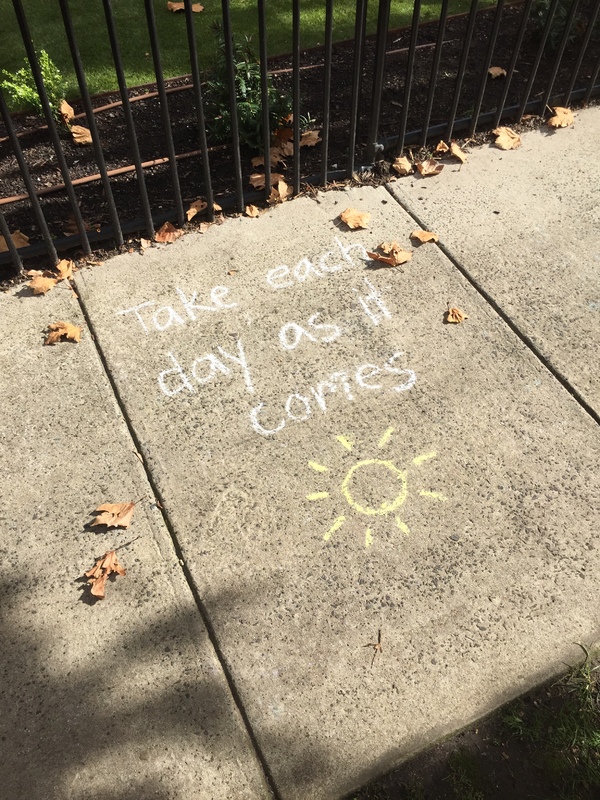 Take each
day as it
comes